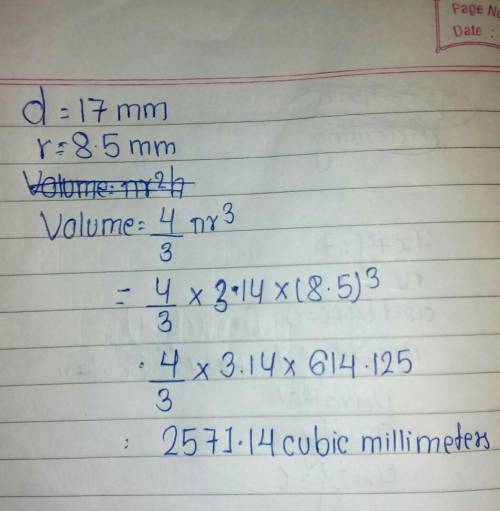 Page No
Date :
d = 17 mm
r = 8.5 mm
Volume = πr²h
Volume = 4/3 πr³
= 4/3 × 3.14 × (8.5)³
. 4/3 × 3.14 × 614.125
: 2571.14 cubic millimeters